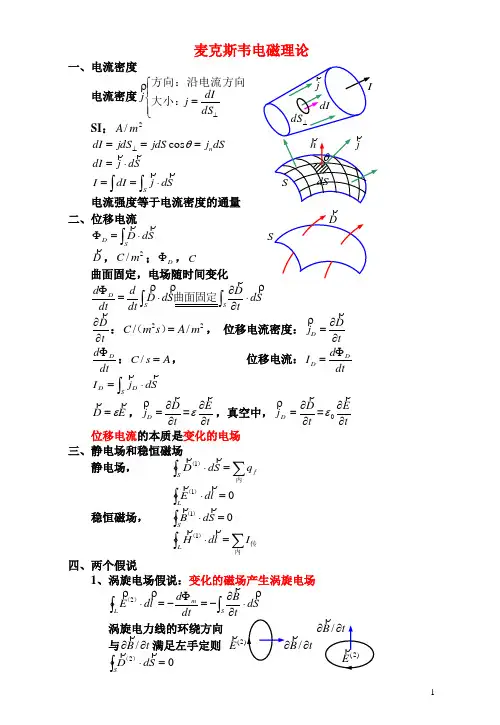 麦克斯韦电磁理论
一、电流密度
电流密度 ρj { 方向：沿电流方向
大小：j = dI/dS⊥
SI：A/m²
dI = jdS⊥ = jdS cosθ = jₙdS
dI = j̆ · dS̆
I = ∫dI = ∫_S j̆ · dS̆
电流强度等于电流密度的通量
j̆ I
dI
dS⊥
n̆ j̆
θ
S dS
二、位移电流
Φ_D = ∫_S D̆ · dS̆
D̆
S
D̆，C/m²；Φ_D，C
曲面固定，电场随时间变化
dΦ_D/dt = d/dt ∫_S D̆ · dS 曲面固定 ∫_S ∂D̆/∂t · dS
∂D̆/∂t：C/（m²s）= A/m²， 位移电流密度：j_D = ∂D̆/∂t
dΦ_D/dt：C/s = A， 位移电流：I_D = dΦ_D/dt
I_D = ∫_S j̆_D · dS̆
D̆ = εĔ，j_D = ∂D̆/∂t = ε ∂Ĕ/∂t，真空中，j_D = ∂D̆/∂t = ε₀ ∂Ĕ/∂t
位移电流的本质是变化的电场
三、静电场和稳恒磁场
静电场， ∮_S D̆⁽¹⁾ · dS̆ = ∑_内 q_f
∮_L Ĕ⁽¹⁾ · dl̆ = 0
稳恒磁场， ∮_S B̆⁽¹⁾ · dS̆ = 0
∮_L H̆⁽¹⁾ · dl̆ = ∑_内 I_传
四、两个假说
1、涡旋电场假说：变化的磁场产生涡旋电场
∮_L E⁽²⁾ · dl = −dΦ_m/dt = −∫_S ∂B̆/∂t · dS
涡旋电力线的环绕方向
与∂B̆/∂t满足左手定则
Ĕ⁽²⁾ ∂B̆/∂t
∂B̆/∂t
Ĕ⁽²⁾
∮_S D̆⁽²⁾ · dS̆ = 0
1